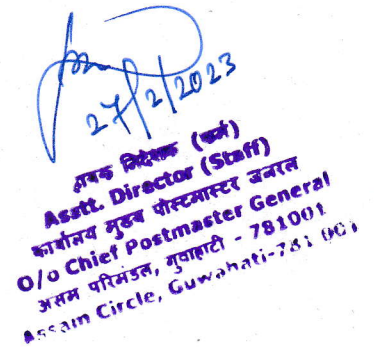 27/2/2023
निदेशक (कर्म)
Asstt. Director (Staff)
कार्यालय मुख्य पोस्टमास्टर जनरल
O/o Chief Postmaster General
असम परिमंडल, गुवाहाटी - 781001
Assam Circle, Guwahati-781 001